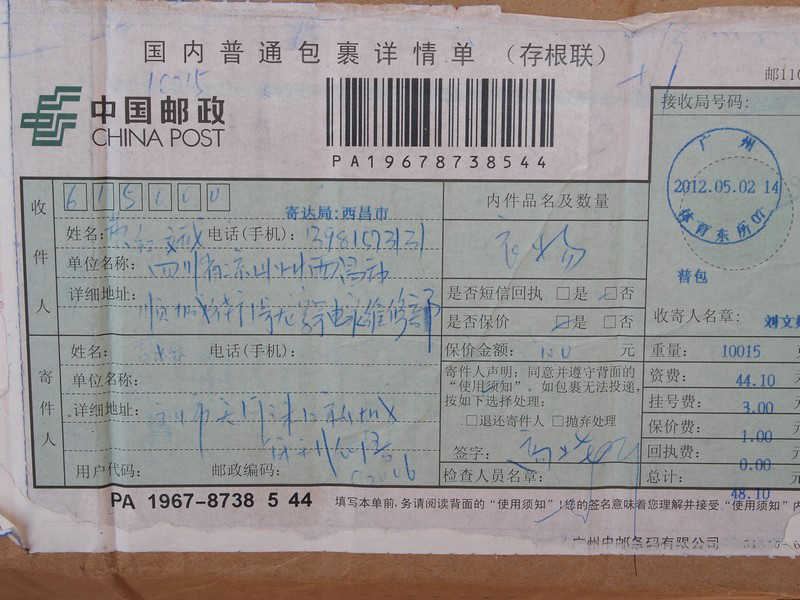 国内普通包裹详情单 (存根联)
10015
中国邮政
CHINA POST
PA19678738544
邮110
接收局号码:
广州
2012.05.02 14
体育东所
普包
收件人
615000
寄达局:西昌市
姓名: 电话(手机):
单位名称: 四川省凉山州西昌市
详细地址:
内件品名及数量
衣物
是否短信回执 □是 □否
是否保价 □是 □否
收寄人名章: 刘文
寄件人
姓名: 电话(手机):
单位名称:
详细地址:
用户代码: 邮政编码:
保价金额: 100 元
寄件人声明:同意并遵守背面的
“使用须知”。如包裹无法投递,
按如下选择处理:
□退还寄件人 □抛弃处理
签字:
检查人员名章:
重量: 10015
资费: 44.10
挂号费: 3.00
保价费: 1.00
回执费: 0.00
总计: 48.10
PA 1967-8738 5 44
填写本单前,务请阅读背面的“使用须知”!您的签名意味着您理解并接受“使用须知”内
广州中邮条码有限公司